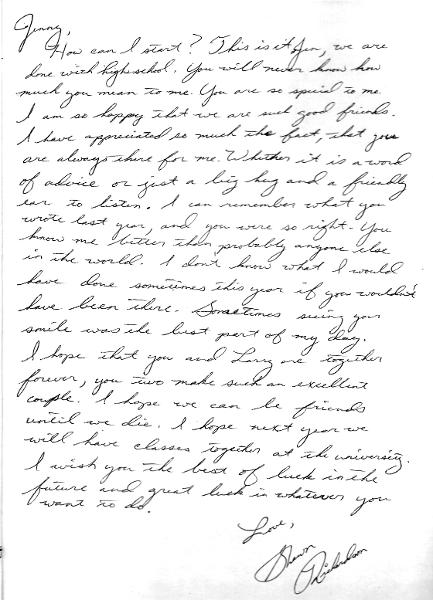 Jinny,
How can I start? This is it Jin, we are
done with high school. You will never know how
much you mean to me. You are so special to me.
I am so happy that we are such good friends.
I have appreciated so much the fact, that you
are always there for me. Whether it is a word
of advice or just a big hug and a friendly
ear to listen. I can remember what you
wrote last year, and you were so right. You
know me better than probably anyone else
in the world. I don't know what I would
have done sometimes this year if you wouldn't
have been there. Sometimes seeing your
smile was the best part of my day.
I hope that you and Larry are together
forever, you two make such an excellent
couple. I hope we can be friends
until we die. I hope next year we
will have classes together at the university.
I wish you the best of luck in the
future and great luck in whatever you
want to do.
Love,
Shawn
Richardson